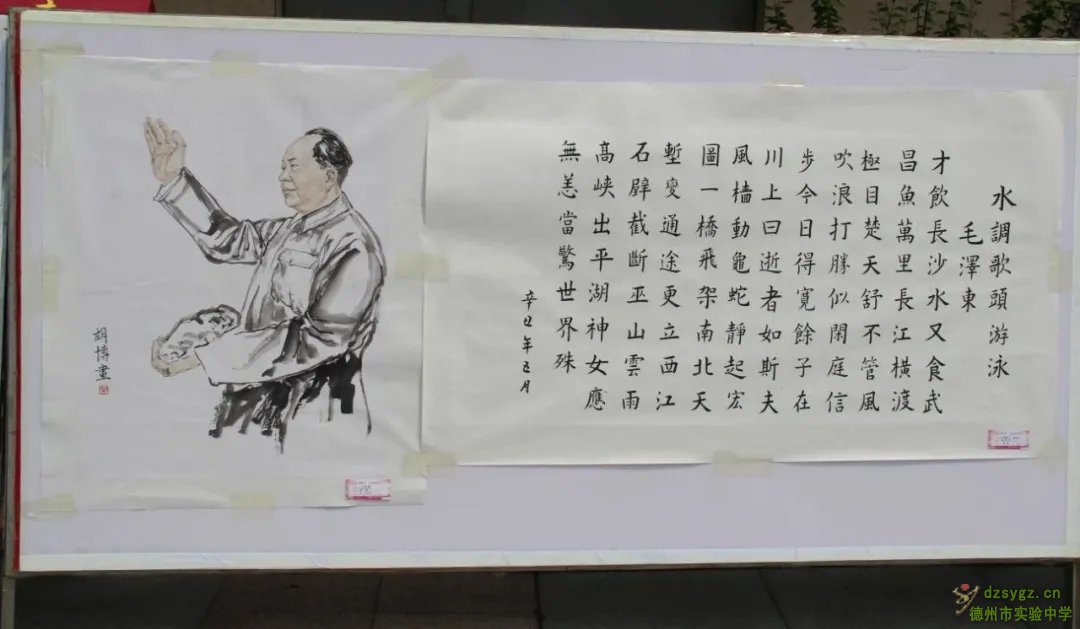 水調歌頭游泳
毛澤東
才飲長沙水又食武
昌魚萬里長江橫渡
極目楚天舒不管風
吹浪打勝似閑庭信
步今日得寬餘子在
川上曰逝者如斯夫
風檣動龜蛇靜起宏
圖一橋飛架南北天
塹變通途更立西江
石壁截斷巫山雲雨
高峽出平湖神女應
無恙當驚世界殊
辛丑年五月
胡博畫
dzsygz.cn
德州市实验中学